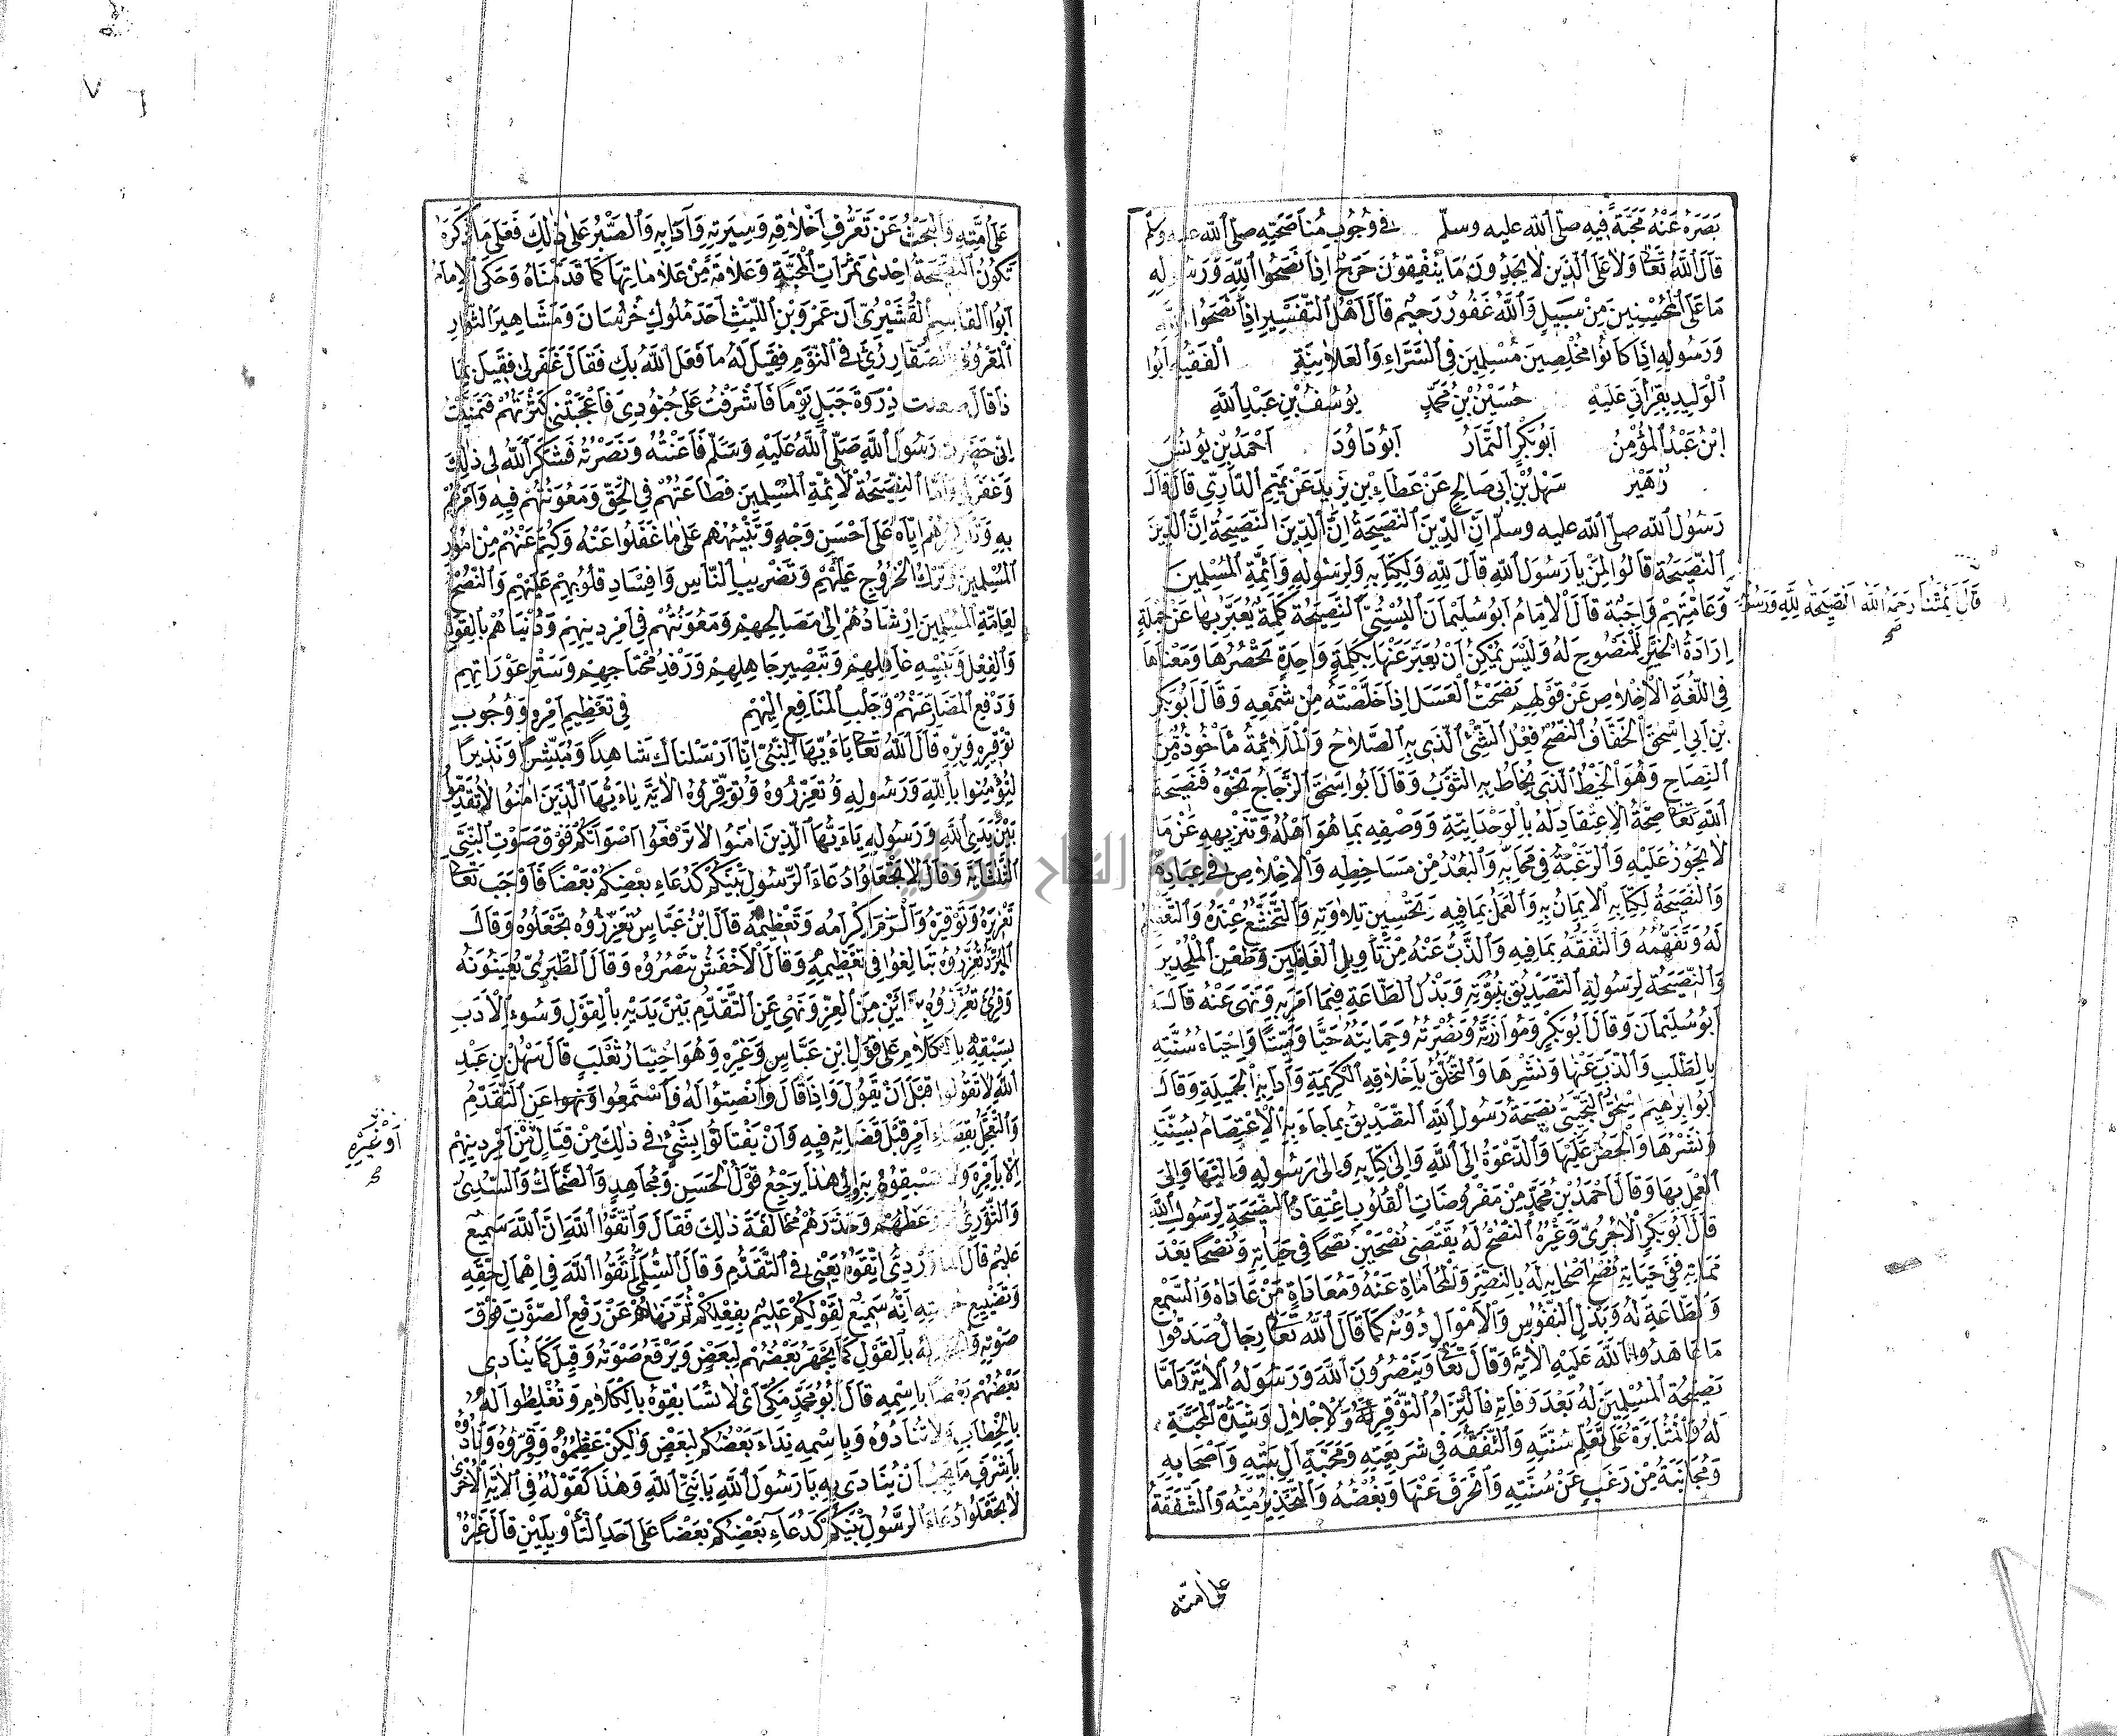 بَصَرَهُ عَنْهُ مَحَبَّةً فِيهِ صلّى الله عليه وسلّم في وُجُوبِ مُنَاصَحَتِهِ صلّى الله عليه وسلم
قَالَ اللهُ تَعَا وَلَا عَلَى الَّذِينَ لَا يَجِدُونَ مَا يُنْفِقُونَ حَرَجٌ اِذَا نَصَحُوا لِلّٰهِ وَرَسُولِهِ
مَا عَلَى الْمُحْسِنِينَ مِنْ سَبِيلٍ وَاللهُ غَفُورٌ رَحِيمٌ قَالَ اَهْلُ التَّفْسِيرِ اِذَا نَصَحُوا لِلّٰهِ
وَرَسُولِهِ اِذَا كَانُوا مُخْلِصِينَ مُسْلِمِينَ فِي السِّرِّ وَالْعَلَانِيَةِ الْفَقِيهُ اَبُوا
الْوَلِيدِ بِقِرَأَتِي عَلَيْهِ حُسَيْنُ بْنُ مُحَمَّدٍ يُوسُفُ بْنِ عَبْدِ اللهِ
اِبْنُ عَبْدُ الْمُؤْمِنُ اَبُو بَكْرِ التَّمَّارُ اَبُو دَاوُدَ اَحْمَدُ بْنِ يُونُسَ
زُهَيْرٌ سَهْلُ بْنِ اَبِي صَالِحٍ عَنْ عَطَاءِ بْنِ يَزِيدَ عَنْ تَمِيمِ الدَّارِيِّ قَالَ قَالَ
رَسُولُ الله صلّى الله عليه وسلّم اِنَّ الدِّينَ النَّصِيحَةُ اِنَّ الدِّينَ النَّصِيحَةُ اِنَّ الدِّينَ
النَّصِيحَةُ قَالُوا لِمَنْ يَا رَسُولَ اللهِ قَالَ لِلّٰهِ وَلِكِتَابِهِ وَلِرَسُولِهِ وَاَئِمَّةِ الْمُسْلِمِينَ
قَالَ اَئِمَّتُنَا رَحِمَهُ اللهُ النَّصِيحَةُ لِلّٰهِ وَرَسُولِهِ
صح
وَعَامَّتِهِمْ وَاجِبَةٌ قَالَ الْاِمَامُ اَبُو سُلَيْمَانَ الْبُسْتِيُّ النَّصِيحَةُ كَلِمَةٌ يُعَبَّرُ بِهَا عَنْ جُمْلَةِ
اِرَادَةُ الْخَيْرِ لِلْمَنْصُوحِ لَهُ وَلَيْسَ يُمْكِنُ اَنْ يُعَبَّرَ عَنْهَا بِكَلِمَةٍ وَاحِدَةٍ تَحْصُرُهَا وَمَعْنَاهَا
فِي اللُّغَةِ الْاِخْلَاصِ عَنْ قَوْلِهِمْ نَصَحْتُ الْعَسَلَ اِذَا خَلَّصْتَهُ مِنْ شَمْعِهِ وَقَالَ اَبُو بَكْرِ
بْنِ اَبِي اِسْحٰقَ الْخَفَّافُ النُّصْحُ فِعْلُ الشَّئْ الَّذِي بِهِ الصَّلَاحُ وَالْمُلَائَمَةُ مَأْخُوذٌ مِنَ
النِّصَاحِ وَهُوَ الْخَيْطُ الَّذِي يُخَاطُ بِهِ الثَّوْبُ وَقَالَ اَبُوا سْحٰقَ الزَّجَّاجُ نَحْوَهُ فَنَصِيحَةُ
اللهِ تَعَا صِحَّةُ الْاِعْتِقَادِ لَهُ بِالْوَحْدَانِيَّةِ وَوَصْفِهِ بِمَا هُوَ اَهْلُهُ وَتَنْزِيهِهِ عَنْ مَا
لَا يَجُوزُ عَلَيْهِ وَالرَّغْبَةُ فِي مَحَابِّهِ وَالْبُعْدُ مِنْ مَسَاخِطِهِ وَالْاِخْلَاصِ فِي عِبَادَتِهِ
وَالنَّصِيحَةُ لِكِتَابِهِ الْاِيمَانُ بِهِ وَالْعَمَلُ بِمَا فِيهِ وَتَحْسِينِ تِلَاوَتِهِ وَالتَّخَشُّعُ عِنْدَهُ وَالتَّعْظِيمُ
لَهُ وَتَفَهُّمُهُ وَالتَّفَقُّهُ بِمَا فِيهِ وَالذَّبُّ عَنْهُ مِنْ تَأْوِيلِ الْغَافِلِينَ وَطَعْنِ الْمُلْحِدِينَ
وَالنَّصِيحَةُ لِرَسُولِهِ التَّصْدِيقُ بِنُبُوَّتِهِ وَبَذْلُ الطَّاعَةِ فِيمَا اَمَرَ بِهِ وَنَهٰى عَنْهُ قَالَهُ
اَبُو سُلَيْمَانَ وَقَالَ اَبُو بَكْرٍ وَمُوَازَرَتُهُ وَنُصْرَتُهُ وَحِمَايَتُهُ حَيًّا وَمَيِّتًا وَاِحْيَاءُ سُنَّتِهِ
بِالطَّلَبِ وَالذَّبِّ عَنْهَا وَنَشْرِهَا وَالتَّخَلُّقُ بِاَخْلَاقِهِ الْكَرِيمَةِ وَآدَابِهِ الْجَمِيلَةِ وَقَالَ
اَبُو اِبْرٰهِيمَ اِسْحٰقُ التُّجِيبِيُّ نَصِيحَةُ رَسُولِ اللهِ التَّصْدِيقُ بِمَا جَاءَ بِهِ الْاِعْتِصَامُ بِسُنَّتِهِ
وَنَشْرُهَا وَالْحَضُّ عَلَيْهَا وَالدَّعْوَةُ اِلَى اللهِ وَاِلٰى كِتَابِهِ وَاِلٰى رَسُولِهِ وَاِلَيْهَا وَاِلَى
الْعَمَلِ بِهَا وَقَالَ اَحْمَدُ بْنِ مُحَمَّدٍ مِنْ مَفْرُوضَاتِ الْقُلُوبِ اِعْتِقَادُ النَّصِيحَةِ لِرَسُولِ اللهِ
قَالَ اَبُو بَكْرٍ الْآجُرِّيُّ وَغَيْرُهُ النُّصْحُ لَهُ يَقْتَضِي نُصْحَيْنِ نُصْحًا فِي حَيَاتِهِ وَنُصْحًا بَعْدَ
مَمَاتِهِ فَفِي حَيَاتِهِ نُصْحُ اَصْحَابِهِ لَهُ بِالنَّصْرِ وَالْمُحَامَاةِ عَنْهُ وَمُعَادَاةِ مَنْ عَادَاهُ وَالسَّمْعِ
وَالطَّاعَةِ لَهُ وَبَذْلِ النُّفُوسِ وَالْاَمْوَالِ دُونَهُ كَمَا قَالَ اللهُ تَعَا رِجَالٌ صَدَقُوا
مَا عَاهَدُوا اللهَ عَلَيْهِ الْاٰيَةَ وَقَالَ تَعَا وَيَنْصُرُونَ اللهَ وَرَسُولَهُ الْاٰيَةَ وَاَمَّا
نَصِيحَةُ الْمُسْلِمِينَ لَهُ بَعْدَ وَفَاتِهِ فَالْتِزَامُ التَّوْقِيرِ لَهُ وَالْاِجْلَالِ وَشِدَّةُ الْمَحَبَّةِ
لَهُ وَالْمُثَابَرَةُ عَلٰى تَعَلُّمِ سُنَّتِهِ وَالتَّفَقُّهُ فِي شَرِيعَتِهِ وَمَحَبَّةِ آلِ بَيْتِهِ وَاَصْحَابِهِ
وَمُجَانَبَةُ مَنْ رَغِبَ عَنْ سُنَّتِهِ وَانْحَرَفَ عَنْهَا وَبُغْضُهُ وَالتَّحْذِيرُ مِنْهُ وَالشَّفَقَةُ
على امته
عَلٰى اُمَّتِهِ وَالْبَحْثُ عَنْ تَعَرُّفِ اَخْلَاقِهِ وَسِيَرِتِهِ وَآدَابِهِ وَالصَّبْرُ عَلٰى ذٰلِكَ فَعَلٰى مَا ذَكَرَهُ
تَكُونُ النَّصِيحَةُ اِحْدٰى ثَمَرَاتِ الْمَحَبَّةِ وَعَلَامَةً مِنْ عَلَامَاتِهَا كَمَا قَدَّمْنَاهُ وَحَكَى الْاِمَامُ
اَبُوا الْقَاسِمِ الْقُشَيْرِيُّ اَنَّ عَمْرَو بْنِ اللَّيْثِ اَحَدَ مُلُوكِ خُرَاسَانَ وَمَشَاهِيرَ الثُّوَّارِ
الْمَعْرُوفِ بِالصَّفَّارِ رُئِيَ فِي النَّوْمِ فَقِيلَ لَهُ مَا فَعَلَ اللهُ بِكَ فَقَالَ غَفَرَ لِي فَقِيلَ بِمَا
ذَا قَالَ صعدت ذِرْوَةَ جَبَلٍ يَوْمًا فَاَشْرَفْتُ عَلٰى جُنُودِي فَاَعْجَبَتْنِي كَثْرَتُهُمْ فَتَمَنَّيْتُ
اَنِّي حَضَرْتُ رَسُولَ اللهِ صَلَّى اللهُ عَلَيْهِ وَسَلَّمَ فَاَعَنْتُهُ وَنَصَرْتُهُ فَشَكَرَ اللهُ لِي ذٰلِكَ
وَغَفَرَ لِي وَاَمَّا النَّصِيحَةُ لِاَئِمَّةِ الْمُسْلِمِينَ فَطَاعَتُهُمْ فِي الْحَقِّ وَمَعُونَتُهُمْ فِيهِ وَاَمْرُهُمْ
بِهِ وَتَذْكِيرُهُمْ اِيَّاهُ عَلٰى اَحْسَنِ وَجْهٍ وَتَنْبِيهُهُمْ عَلٰى مَا غَفَلُوا عَنْهُ وَكُتِمَ عَنْهُمْ مِنْ اُمُورِ
الْمُسْلِمِينَ وَتَرْكُ الْخُرُوجِ عَلَيْهِمْ وَتَضْرِيبِ النَّاسِ وَاِفْسَادِ قُلُوبِهِمْ عَلَيْهِمْ وَالنُّصْحُ
لِعَامَّةِ الْمُسْلِمِينَ اِرْشَادُهُمْ اِلٰى مَصَالِحِهِمْ وَمَعُونَتُهُمْ فِي اَمْرِ دِينِهِمْ وَدُنْيَاهُمْ بِالْقَوْلِ
وَالْفِعْلِ وَتَنْبِيهِ غَافِلِهِمْ وَتَبْصِيرِ جَاهِلِهِمْ وَرَفْدِ مُحْتَاجِهِمْ وَسَتْرِ عَوْرَاتِهِمْ
وَدَفْعِ الْمَضَارِّ عَنْهُمْ وَجَلْبِ الْمَنَافِعِ اِلَيْهِمْ فِي تَعْظِيمِ اَمْرِهِ وَوُجُوبِ
تَوْقِيرِهِ وَبِرِّهِ قَالَ اللهُ تَعَا يَاءَيُّهَا النَّبِيُّ اِنَّا اَرْسَلْنَاكَ شَاهِدًا وَمُبَشِّرًا وَنَذِيرًا
لِتُؤْمِنُوا بِاللهِ وَرَسُولِهِ وَتُعَزِّرُوهُ وَتُوَقِّرُوهُ الْاٰيَةَ يَاءَيُّهَا الَّذِينَ اٰمَنُوا لَا تُقَدِّمُوا
بَيْنَ يَدَيِ اللهِ وَرَسُولِهِ يَاءَيُّهَا الَّذِينَ اٰمَنُوا لَا تَرْفَعُوا اَصْوَاتَكُمْ فَوْقَ صَوْتِ النَّبِيِّ
الثَّلٰثَ اٰيَةَ وَقَالَ لَا تَجْعَلُوا دُعَاءَ الرَّسُولِ بَيْنَكُمْ كَدُعَاءِ بَعْضِكُمْ بَعْضًا فَاَوْجَبَ تَعَا
تَعْزِيرَهُ وَتَوْقِيرَهُ وَاَلْزَمَ اِكْرَامَهُ وَتَعْظِيمَهُ قَالَ ابْنُ عَبَّاسٍ تُعَزِّرُوهُ تُجِلُّوهُ وَقَالَ
الْمُبَرَّدُ تُعَزِّرُوهُ تُبَالِغُوا فِي تَعْظِيمِهِ وَقَالَ الْاَخْفَشُ تَنْصُرُوهُ وَقَالَ الطَّبَرِيُّ تُعِينُونَهُ
وَقُرِئَ تُعَزِّزُوهُ بِزَائَيْنِ مِنَ الْعِزِّ وَنَهٰى عَنِ التَّقَدُّمِ بَيْنَ يَدَيْهِ بِالْقَوْلِ وَسُوءِ الْاَدَبِ
بِسَبْقِهِ بِالْكَلَامِ عَلٰى قَوْلِ ابْنِ عَبَّاسٍ وَغَيْرِهِ وَهُوَ اخْتِيَارُ ثَعْلَبٍ قَالَ سَهْلُ بْنِ عَبْدِ
اللهِ لَا تَقُولُوا قَبْلَ اَنْ يَقُولَ وَاِذَا قَالَ وَاَنْصِتُوا لَهُ فَاسْتَمِعُوا وَنُهُوا عَنِ التَّقَدُّمِ
وَالتَّعَجُّلِ بِقَضَاءِ اَمْرٍ قَبْلَ قَضَائِهِ فِيهِ وَاَنْ يَفْتَاتُوا بِشَيْءٍ فِي ذٰلِكَ مِنْ قِتَالٍ مِنْ اَمْرِ دِينِهِمْ
اَوْ غَيْرِهِ
صح
اِلَّا بِاَمْرِهِ وَلَا يَسْبِقُوهُ بِهِ وَاِلٰى هٰذَا يَرْجِعُ قَوْلُ الْحَسَنِ وَمُجَاهِدٍ وَالضَّحَّاكُ وَالسُّدِّيِّ
وَالثَّوْرِيِّ وَعَظَهُمْ وَحَذَّرَهُمْ مُخَالَفَةَ ذٰلِكَ فَقَالَ وَاتَّقُوا اللهَ اِنَّ اللهَ سَمِيعٌ
عَلِيمٌ قَالَ الْمَاوَرْدِيُّ اِتَّقُوهُ يَعْنِي فِي التَّقَدُّمِ وَقَالَ السُّلَمِيُّ اتَّقُوا اللهَ فِي اِهْمَالِ حَقِّهِ
وَتَضْيِيعِ حُرْمَتِهِ اَنَّهُ سَمِيعٌ لِقَوْلِكُمْ عَلِيمٌ بِفِعْلِكُمْ ثُمَّ نَهَاهُمْ عَنْ رَفْعِ الصَّوْتِ فَوْقَ
صَوْتِهِ وَالْجَهْرِ لَهُ بِالْقَوْلِ كَمَا يَجْهَرُ بَعْضُهُمْ لِبَعْضٍ وَيَرْفَعُ صَوْتَهُ وَقِيلَ كَمَا يُنَادِي
بَعْضُهُمْ بَعْضًا بِاسْمِهِ قَالَ اَبُو مُحَمَّدٍ مَكِّيٌّ اَيْ لَا تُسَابِقُوهُ بِالْكَلَامِ وَتُغْلِظُوا لَهُ
بِالْخِطَابِ وَلَا تُنَادُوهُ وَبِاسْمِهِ نِدَاءَ بَعْضُكُمْ لِبَعْضٍ وَلٰكِنْ عَظِّمُوهُ وَوَقِّرُوهُ وَنَادُوهُ
بِاَشْرَفِ مَا يُحِبُّ اَنْ يُنَادٰى بِهِ يَا رَسُولَ اللهِ يَا نَبِيَّ اللهِ وَهٰذَا كَقَوْلِهِ فِي الْاٰيَةِ الْاُخْرٰى
لَا تَجْعَلُوا دُعَاءَ الرَّسُولِ بَيْنَكُمْ كَدُعَاءِ بَعْضِكُمْ بَعْضًا عَلٰى اَحَدِ التَّأْوِيلَيْنِ قَالَ غَيْرُهُ